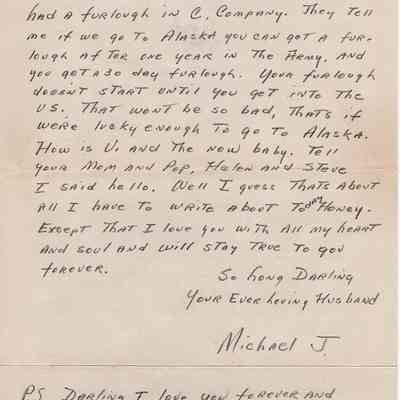 had a furlough in C, Company. They tell
me if we go to Alaska you can got a fur-
lough after one year in the Army, and
you got a 30 day furlough. Your furlough
doesn't start until you get into the
US. That wont be so bad, thats if
we're lucky enough to go to Alaska.
How is U, and the now baby. Tell
your Mom and Pop, Helen and Steve
I said hello. Well I guess thats about
all I have to write about today Honey.
Except that I love you with all my heart
and soul and will stay true to you
forever.
So Long Darling
Your Ever Loving Husband
Michael J.
PS Darling I love you forever and